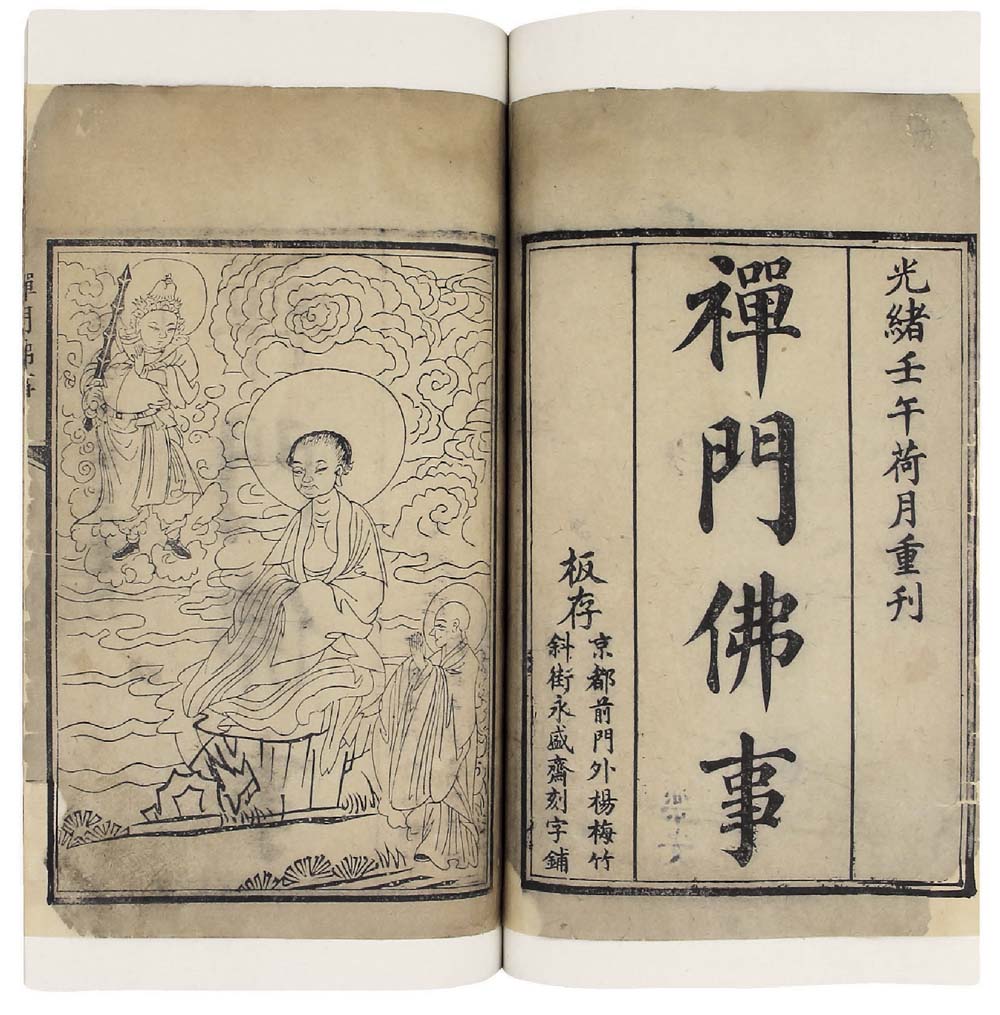 光緒壬午荷月重刊
禪門佛事
板存
京都前門外楊梅竹
斜街永盛齋刻字鋪
禪門佛事